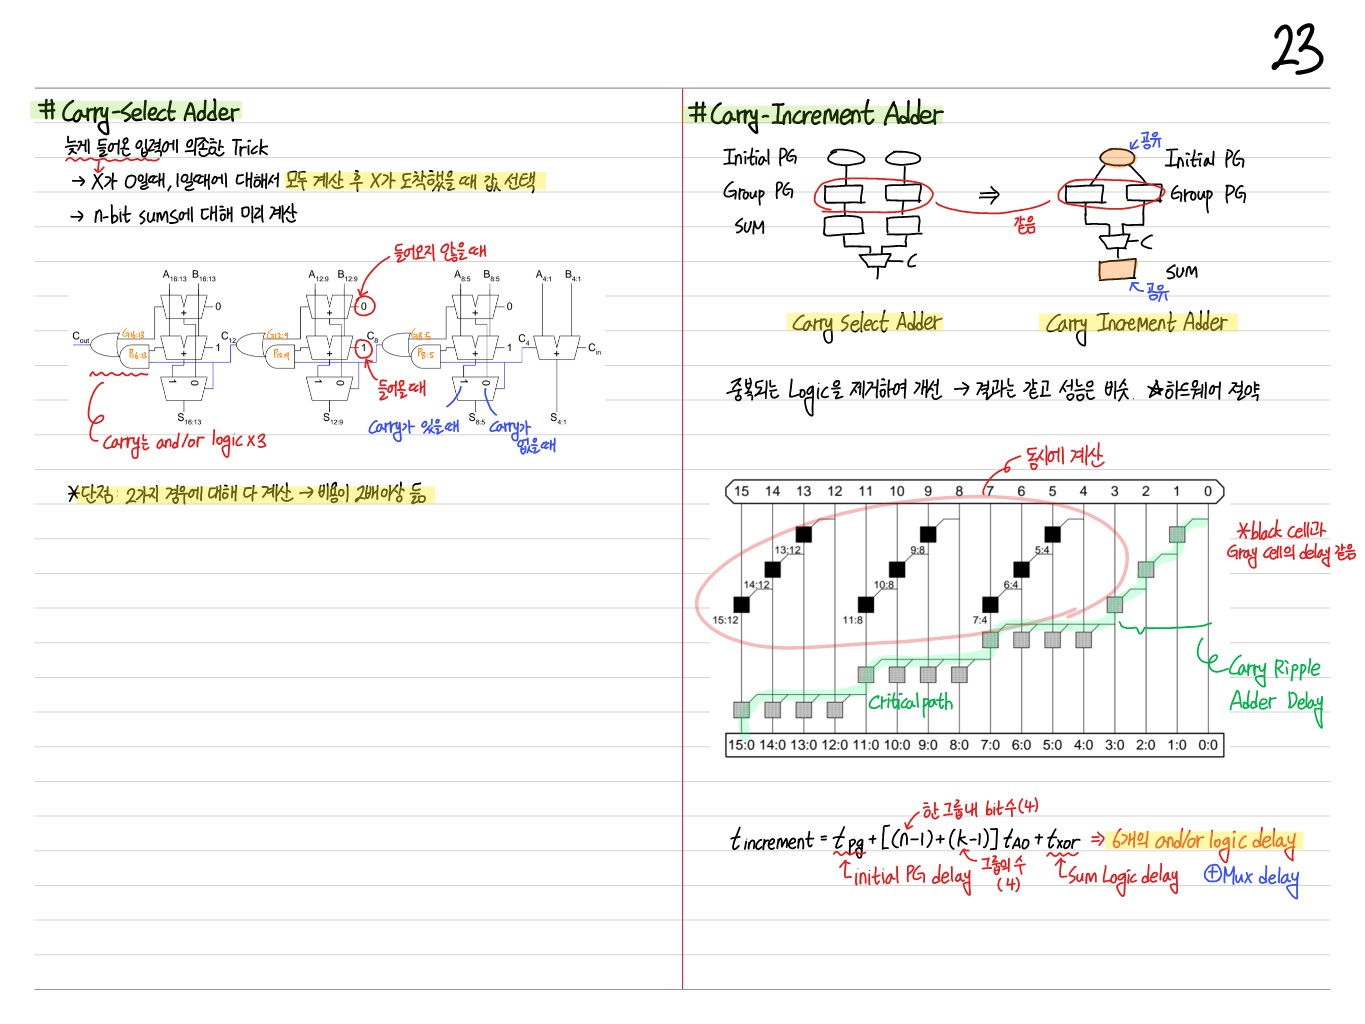 23
# Carry-Select Adder
늦게 들어온 입력에 의존한 Trick
→ X가 0일때, 1일때에 대해서 모두 계산 후 X가 도착했을 때 값 선택
→ n-bit sums에 대해 미리 계산
들어오지 않을 때
A16:13 B16:13 A12:9 B12:9 A8:5 B8:5 A4:1 B4:1
0 0 0
+ + +
Cout G16:13 C12 G12:9 C8 G8:5 C4 Cin
P16:13 P12:9 P8:5
1 1 1
+ + + +
1 0 1 0 1 0
들어올 때
S16:13 S12:9 S8:5 S4:1
Carry가 있을때 Carry가 없을때
Carry는 and/or logic x3
*단점: 2가지 경우에 대해 다 계산 → 비용이 2배이상 듦
# Carry-Increment Adder
공유
Initial PG Initial PG
Group PG ⇒ Group PG
같음
SUM
C C
SUM
공유
Carry Select Adder Carry Increment Adder
중복되는 Logic을 제거하여 개선 → 결과는 같고 성능은 비슷. ☆하드웨어 절약
동시에 계산
15 14 13 12 11 10 9 8 7 6 5 4 3 2 1 0
*black cell과
Gray cell의 delay 같음
13:12 9:8 5:4
14:12 10:8 6:4
15:12 11:8 7:4
Carry Ripple
Adder Delay
Critical path
15:0 14:0 13:0 12:0 11:0 10:0 9:0 8:0 7:0 6:0 5:0 4:0 3:0 2:0 1:0 0:0
한 그룹내 bit수(4)
t increment = t pg + [(n-1) + (k-1)] t AO + t xor ⇒ 6개의 and/or logic delay
initial PG delay 그룹의 수 (4) Sum Logic delay ⊕Mux delay